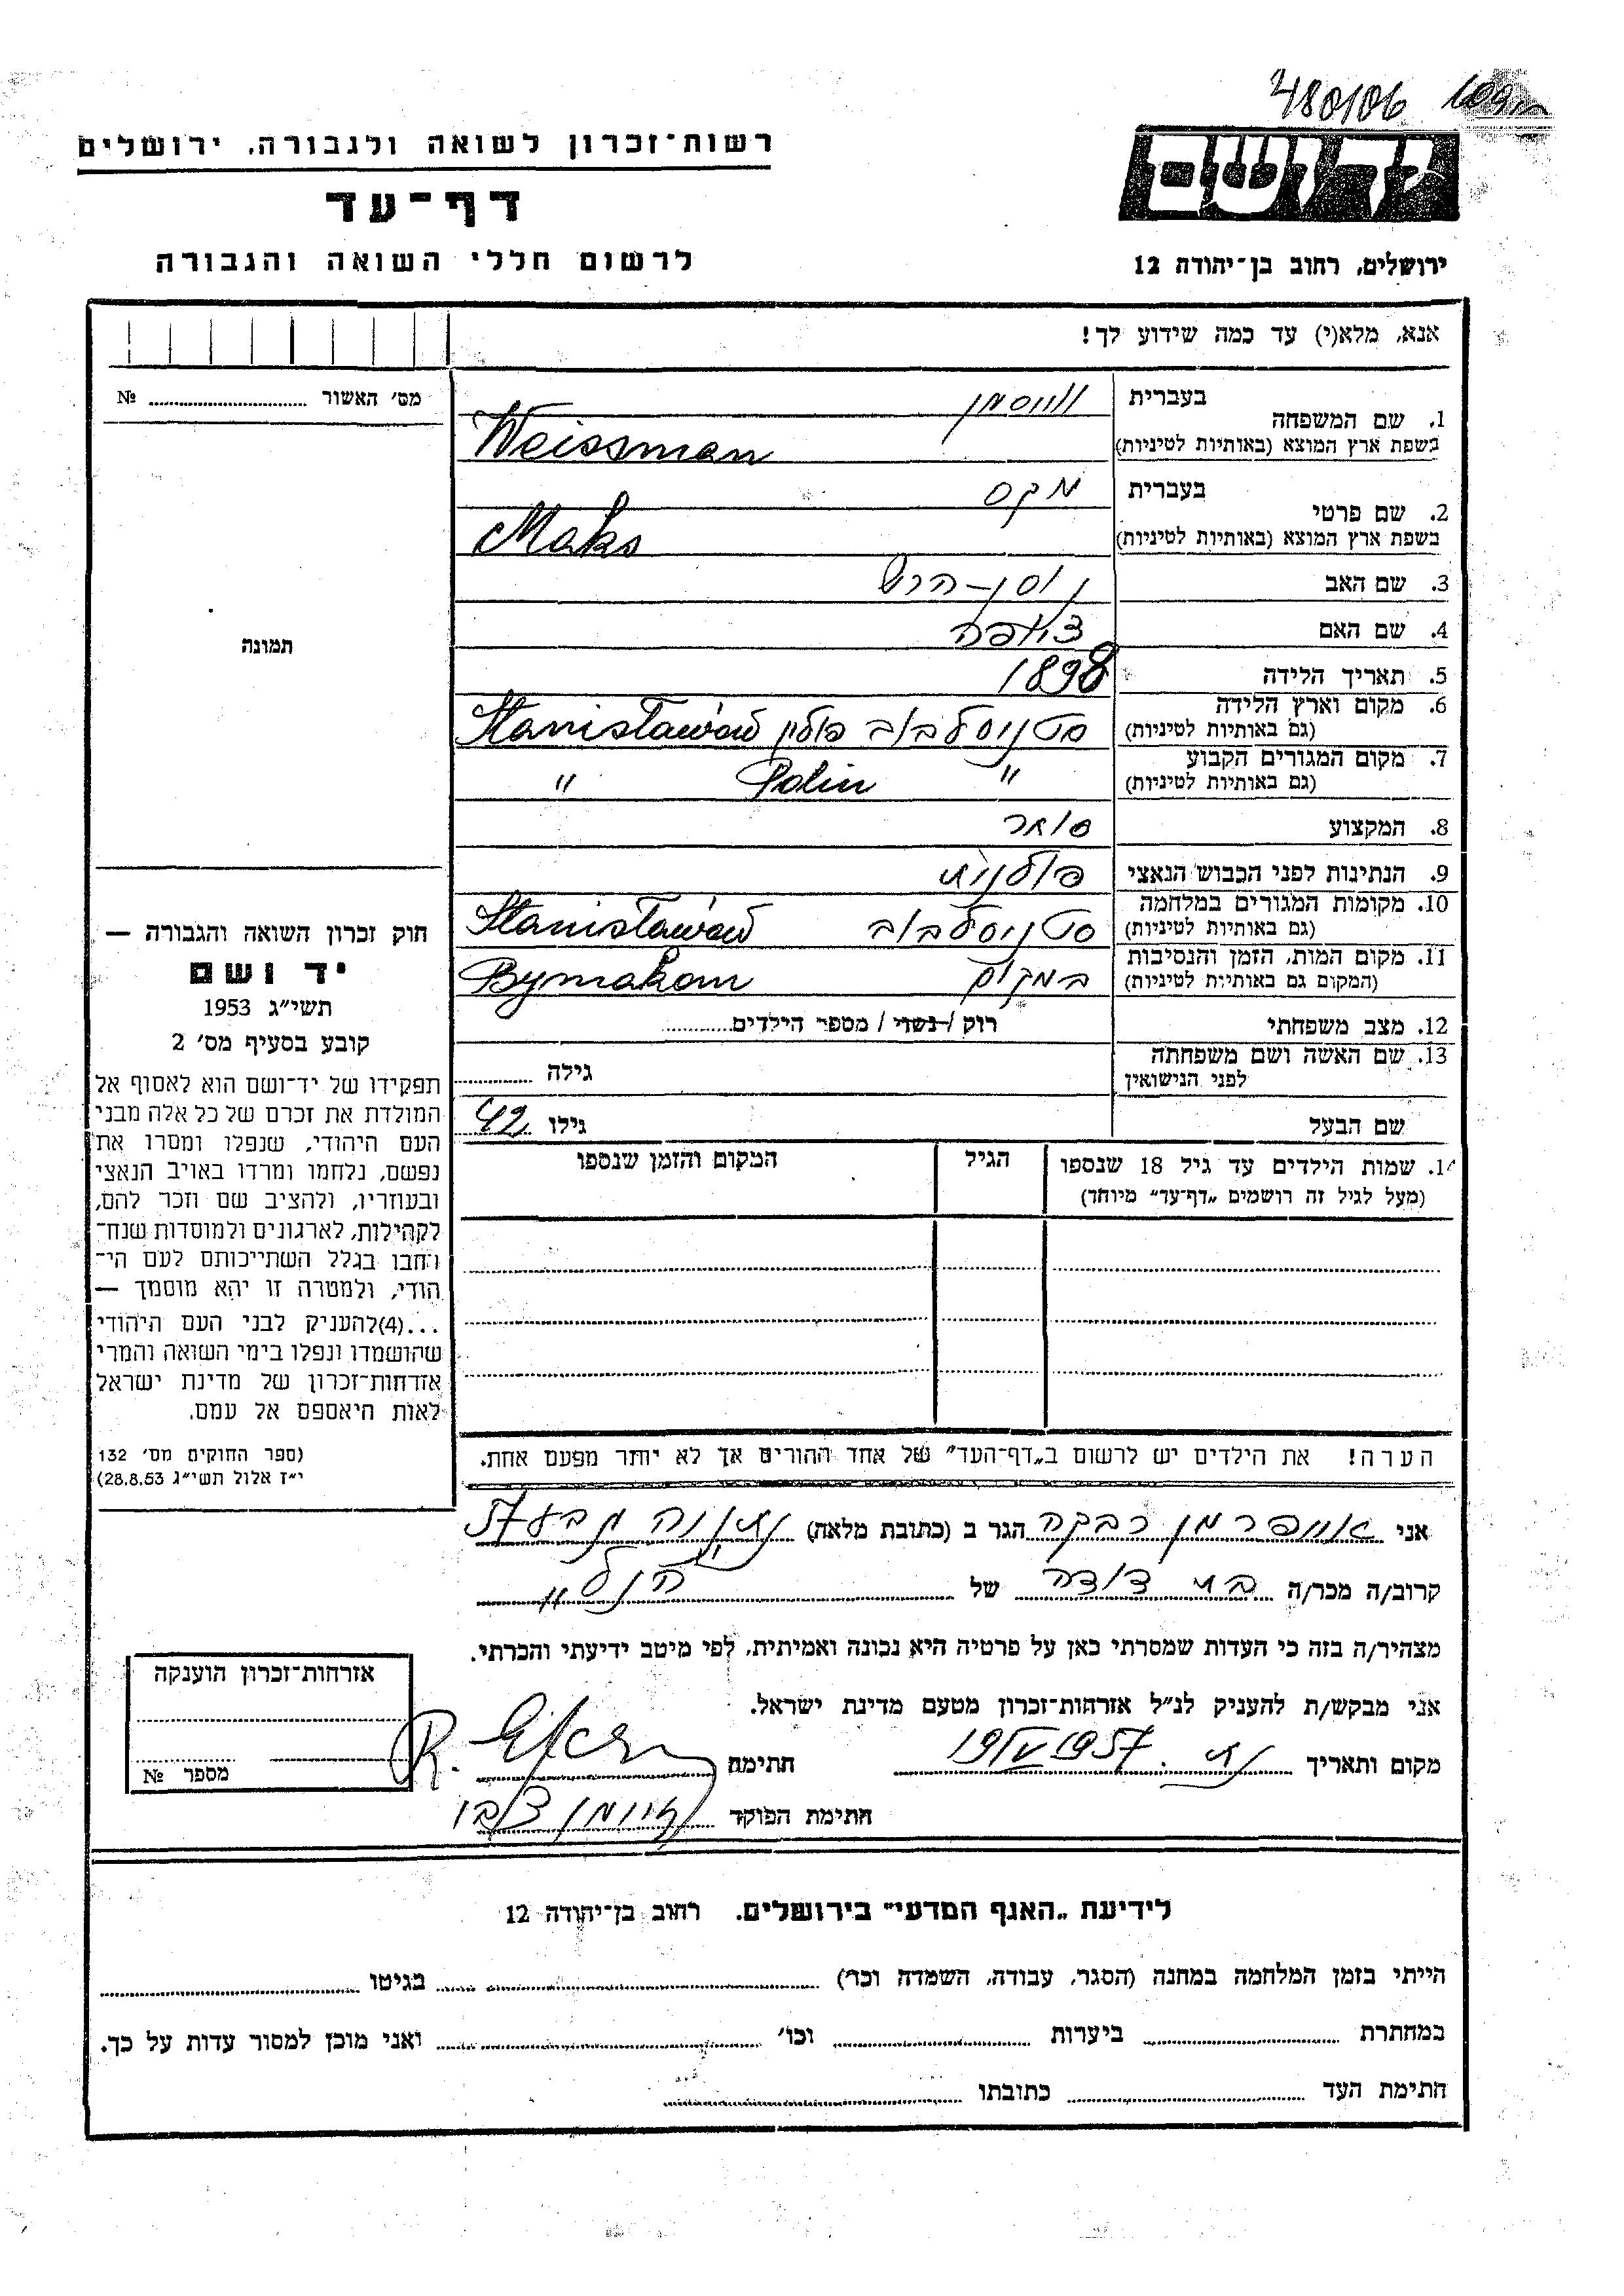 480106
רשות־זכרון לשואה ולגבורה, ירושלים
דף־עד
לרשום חללי השואה והגבורה
יד ושם
ירושלים, רחוב בן־יהודה 12
אנא, מלא(י) עד כמה שידוע לך!
מס׳ האשור № 
1. שם המשפחה
בעברית ווייסמן
בשפת ארץ המוצא (באותיות לטיניות) Weissman
2. שם פרטי
בעברית מקס
בשפת ארץ המוצא (באותיות לטיניות) Maks
3. שם האב נוסן-הרש
4. שם האם
5. תאריך הלידה 1898
6. מקום וארץ הלידה
(גם באותיות לטיניות) סטניסלבוב פולין Stanisławów
7. מקום המגורים הקבוע
(גם באותיות לטיניות) " Polin "
8. המקצוע סוחר
9. הנתינות לפני הכבוש הנאצי פולנית
10. מקומות המגורים במלחמה
(גם באותיות לטיניות) סטניסלבוב Stanisławów
11. מקום המות, הזמן והנסיבות
(המקום גם באותיות לטיניות) במקום Bymakom
12. מצב משפחתי רוק / נשוי / מספר הילדים
13. שם האשה ושם משפחתה
לפני הנישואין גילה
שם הבעל גילו 42
14. שמות הילדים עד גיל 18 שנספו
(מעל לגיל זה רושמים „דף־עד” מיוחד)
הגיל
המקום והזמן שנספו
תמונה
חוק זכרון השואה והגבורה —
יד ושם
תשי״ג 1953
קובע בסעיף מס׳ 2
תפקידו של יד־ושם הוא לאסוף אל
המולדת את זכרם של כל אלה מבני
העם היהודי, שנפלו ומסרו את
נפשם, נלחמו ומרדו באויב הנאצי
ובעוזריו, ולהציב שם וזכר להם,
לקהילות, לארגונים ולמוסדות שנח־
רבו בגלל השתייכותם לעם הי־
הודי, ולמטרה זו יהא מוסמך —
...(4)להעניק לבני העם היהודי
שהושמדו ונפלו בימי השואה והמרי
אזרחות־זכרון של מדינת ישראל
לאות היאספם אל עמם.
(ספר החוקים מס׳ 132
י״ז אלול תשי״ג 28.8.53)
הערה! את הילדים יש לרשום ב„דף־העד” של אחד ההורים אך לא יותר מפעם אחת.
אני רבקה הגר ב (כתובת מלאה) נתניה
קרוב/ה מכר/ה בת דודה של הנ"ל
מצהיר/ה בזה כי העדות שמסרתי כאן על פרטיה היא נכונה ואמיתית, לפי מיטב ידיעתי והכרתי.
אני מבקש/ת להעניק לנ״ל אזרחות־זכרון מטעם מדינת ישראל.
מקום ותאריך נת. 19/V 1957 חתימה
חתימת הפוקד
אזרחות־זכרון הוענקה
מספר №
לידיעת „האגף המדעי” בירושלים. רחוב בן־יהודה 12
הייתי בזמן המלחמה במחנה (הסגר, עבודה, השמדה וכו׳) בגיטו
במחתרת ביערות וכו׳ ואני מוכן למסור עדות על כך.
חתימת העד כתובתו